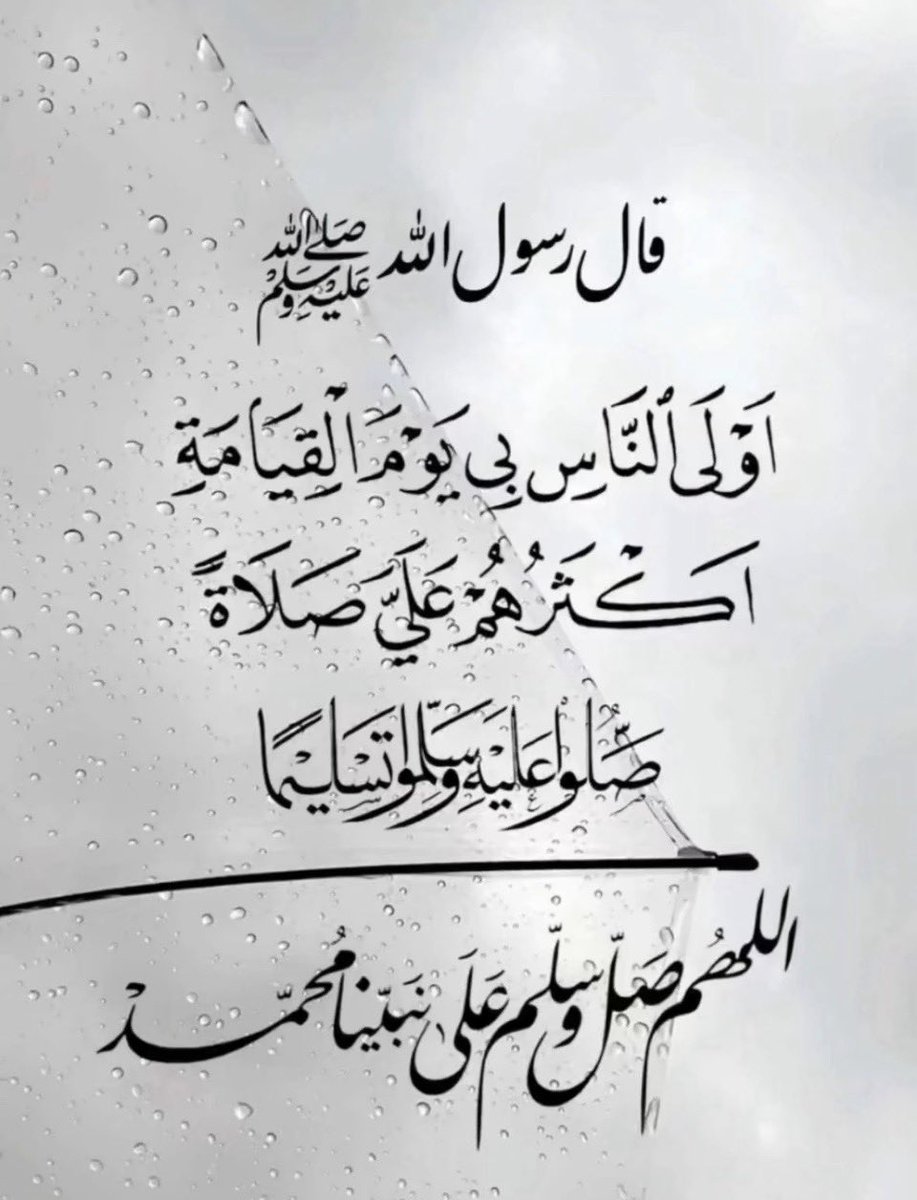 قال رسول الله صلى الله عليه وسلم
اَوْلَى ٱلنَّاسِ بِي يَوْمَ الْقِيَامَةِ
اَكْثَرُهُمْ عَلَيَّ صَلَاةً
صَلُّوا عَلَيْهِ وَسَلِّمُوا تَسْلِيمًا
اللهُم صَلّ وسلّم عَلَى نَبيّنا مُحمّدْ